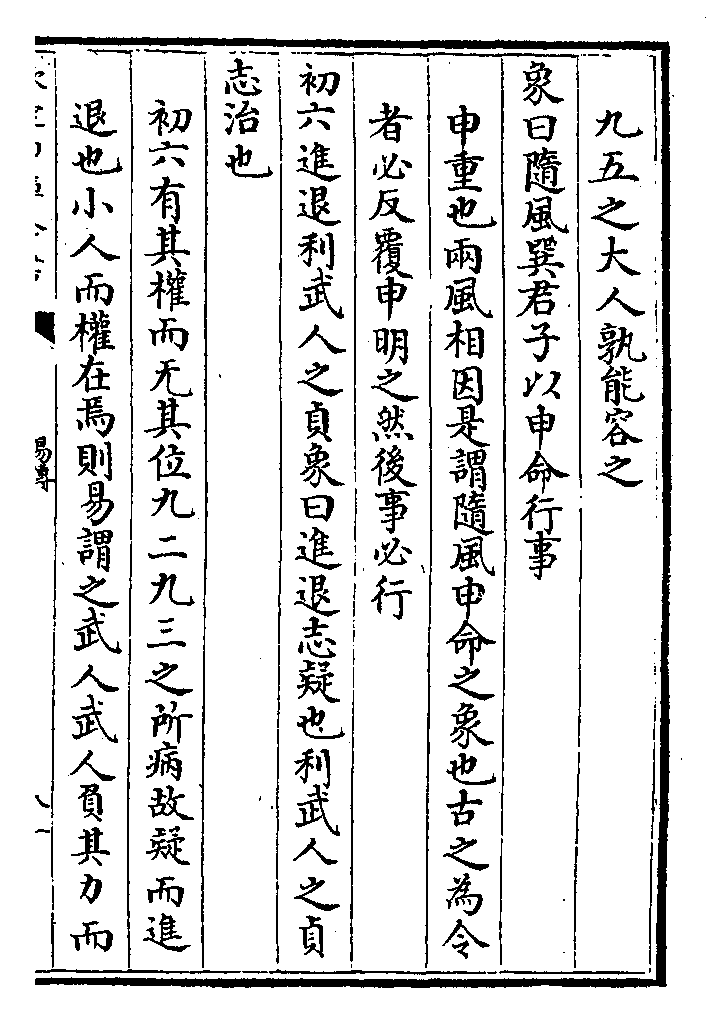 九五之大人孰能容之
象曰隨風巽君子以申命行事
申重也兩風相因是謂隨風申命之象也古之為令
者必反覆申明之然後事必行
初六進退利武人之貞象曰進退志疑也利武人之貞
志治也
初六有其權而无其位九二九三之所病故疑而進
退也小人而權在焉則易謂之武人武人負其力而
易傳